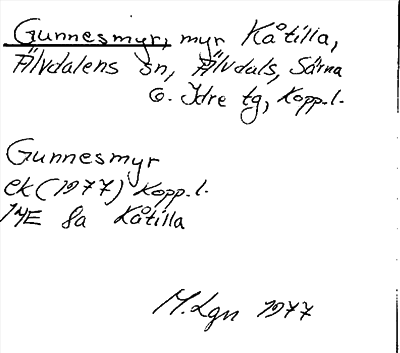 Gunnesmyr, myr Kåtilla,
Älvdalens sn, Älvdals, Särna
o. Idre tg, Kopp.l.
Gunnesmyr
ek (1977) Kopp.l.
14E 8a Kåtilla
M.Lgn 1977